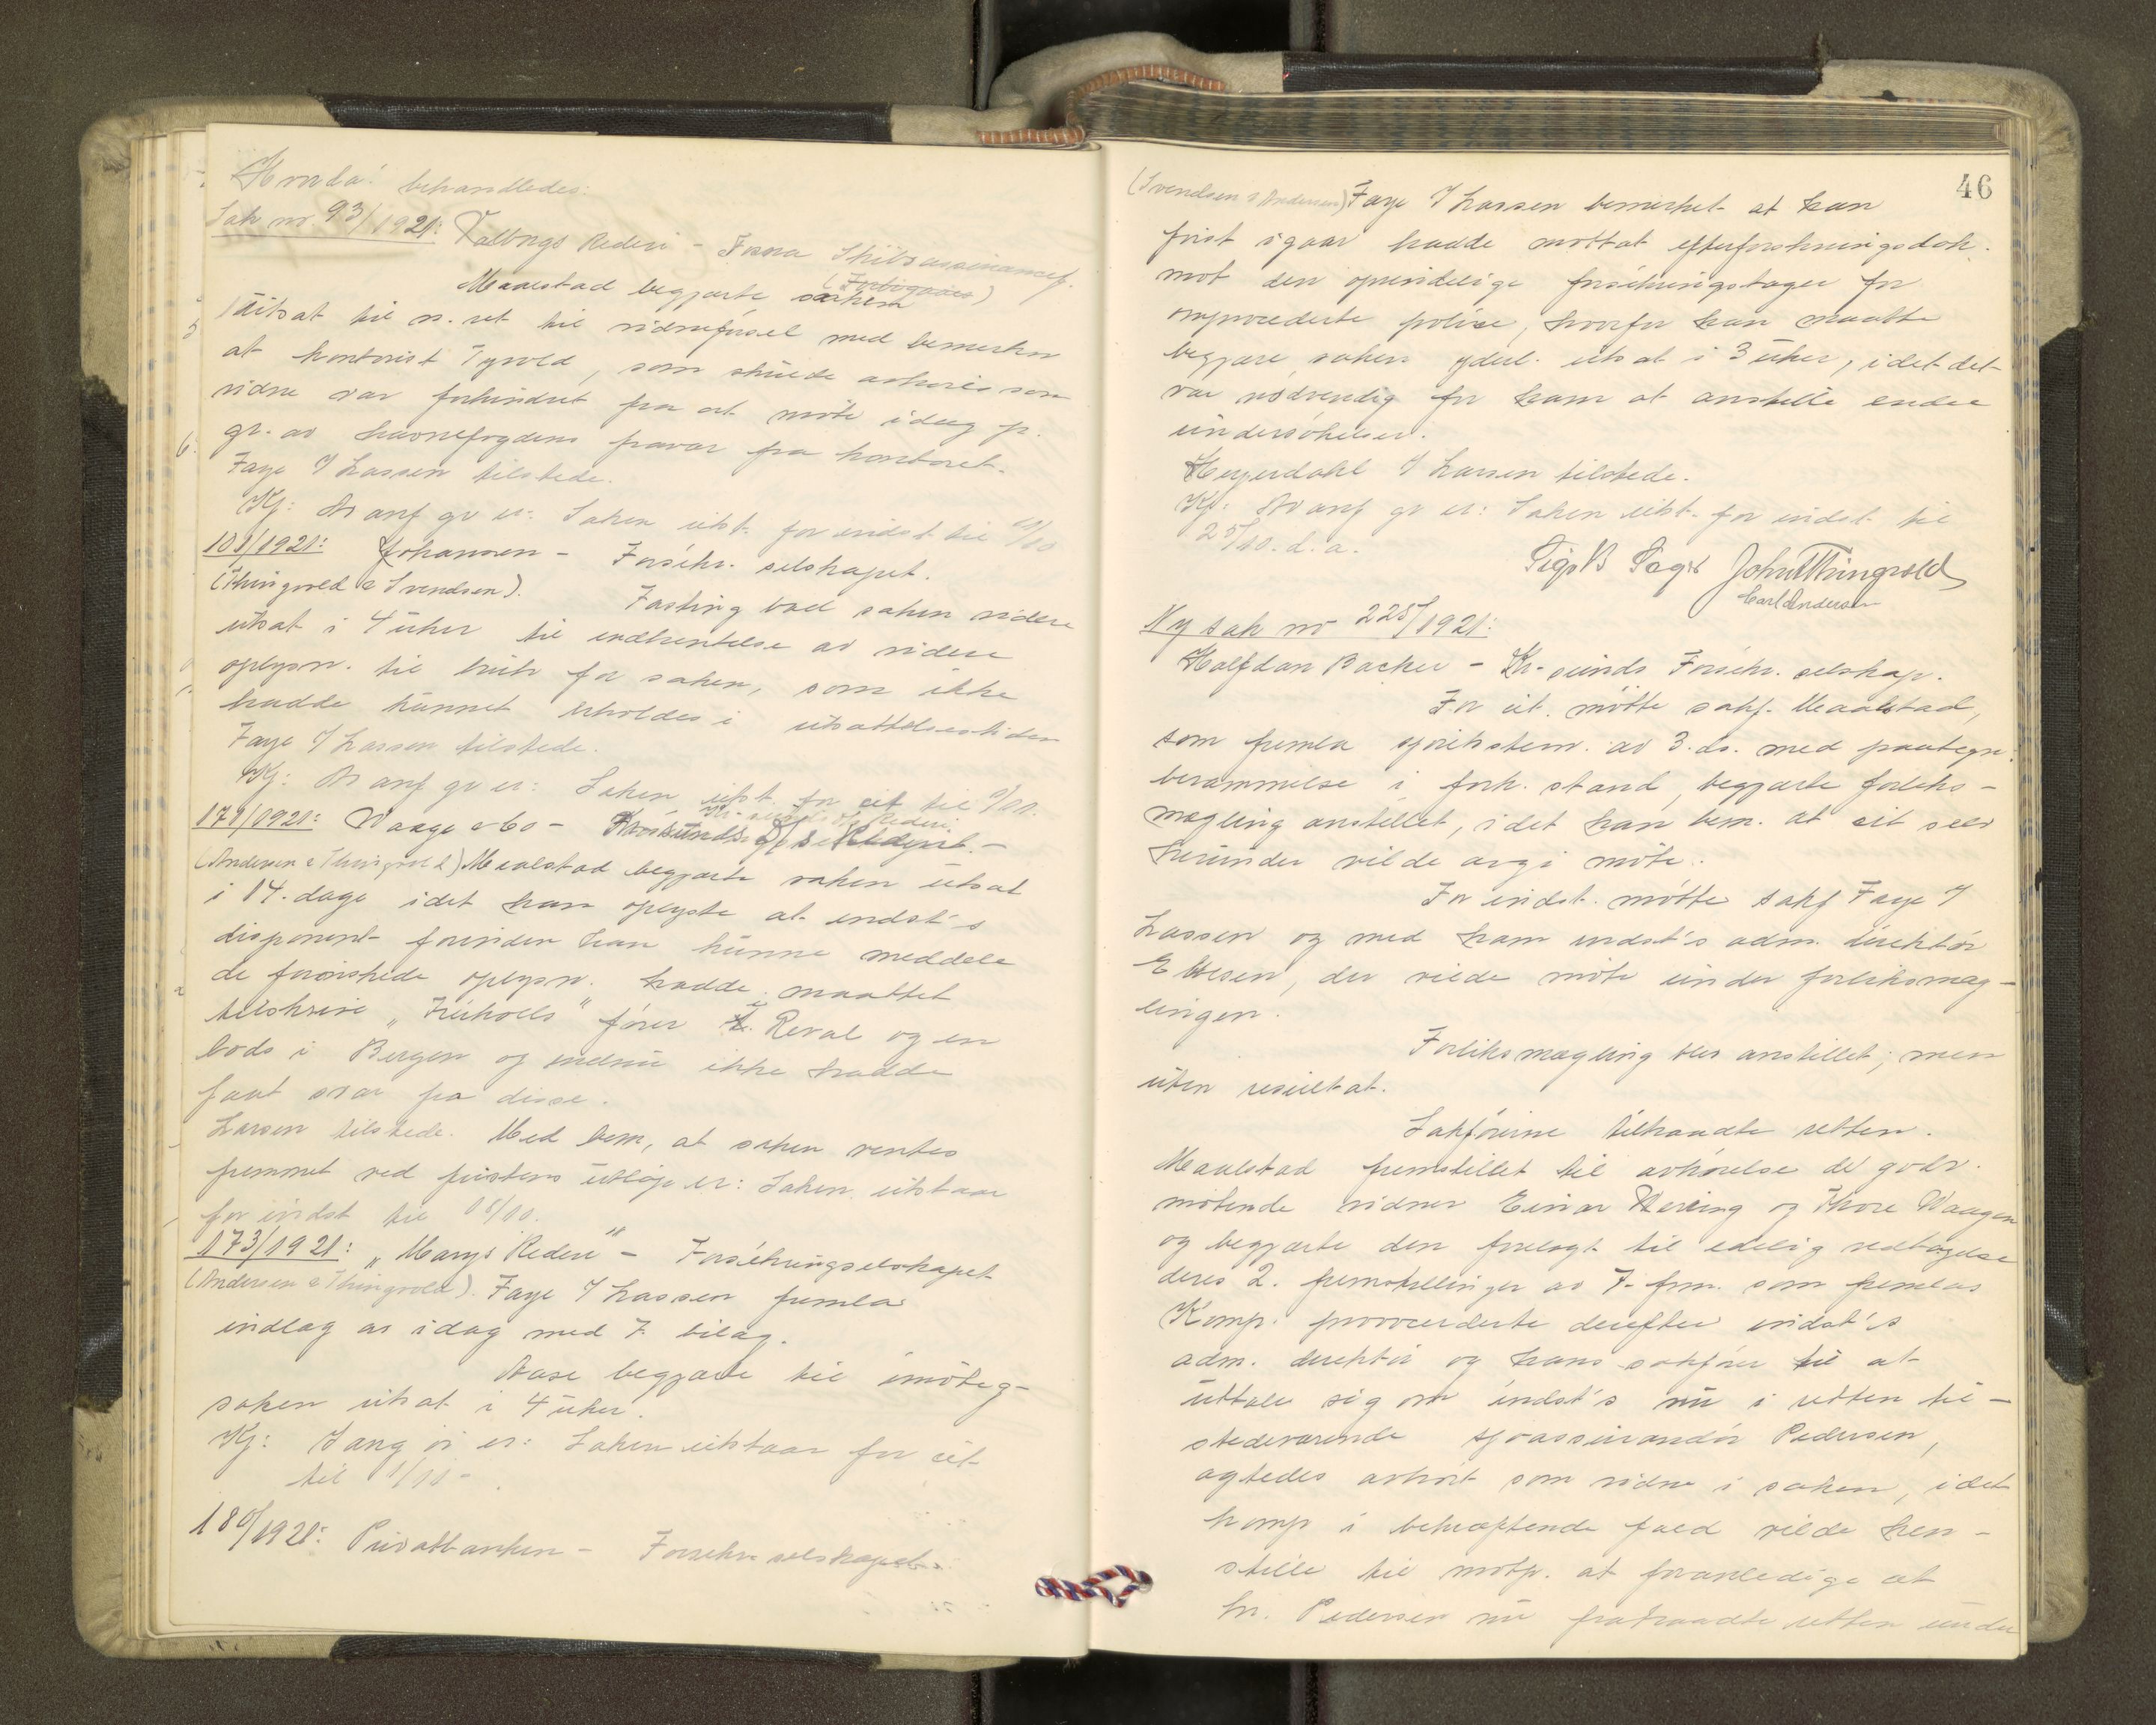 Hvorda: behandledes:
Sak nr. 93/1921: Valborgs Rederi - Fosna Skibsassurancef.
Maalstad begjærte saken
utsat til n. ret til vidneførsel med bemerkn
at kontorist Tyvold, som skulde avhøres som
vidne var forhindret fra at møte idag p.
gr. av havnefogdens fravær fra kontoret.
Faye f Lassen tilstede.
Kj: Av anf gr er: Saken utst. for indst til
101/1921: Johansen - Forsikr. selskapet.
(Thingvold & Svendsen). Fasting bad saken videre
utsat i 4 uker til indhentelse av videre
oplysn. til bruk for saken, som ikke
hadde kunnet erholdes i utsættelsestiden
Faye f Lassen tilstede.
Kj: Av anf gr er: Saken utst. for cit til
171/1921: Waage & Co -
(Andersen & Thingvold) Maalstad begjærte saken utsat
i 14. dage idet han oplyste at indst's
disponent forinden han kunne meddele
de forønskede oplysn. hadde maattet
tilskrive fører i Reval og en
bods i Bergen og endnu ikke hadde
faat svar fra disse.
Larsen tilstede. Med bem, at saken ventes
fremmet ved fristens utløp er: Saken utstaar
for indst til
173/1921: "Marys Rederi" - Forsikringsselskapet
(Andersen & Thingvold). Faye f Lassen fremla
indlæg av idag med 7 bilag.
Aase begjærte til imøteg-
saken utsat i 4 uker.
Kj: I ang vi er: Saken utstaar for cit
til 1/11 -
180/1921: Privatbanken - Forsikr selskapet.
46
(Svendsen & Andersen) Faye f Lassen bemerket at han
først igaar hadde mottat efterforskningsdok.
mot den oprindelige forsikringstager for
omprocederte police, hvorfor han maatte
begjære saken yderl. utsat i 3 uker, idet det
var nødvendig for ham at anstille endel
undersøkelser.
Heyerdahl f Larsen tilstede.
Kj: Av anf gr er: Saken utst. for indst. til
25/10. d. a.
John Thingvold
Carl Andersen
Ny sak nr 225/1921:
Halfdan Backer - Kr.sunds Forsikr. selskap.
For cit. møtte sakf. Maalstad,
som fremla av 3. ds. med paategn.
berammelse i fork. stand, begjærte forliks-
mægling anstillet, idet han bem. at cit selv
herunder vilde avgi møte.
For indst. møtte sakf Faye f
Lassen og med ham indst's adm. direktør
Ellesen, der vilde møte under forliksmæg-
lingen.
Forliksmægling blev anstillet; men
uten resultat.
Sakførerne tilraadte retten.
Maalstad fremstillet til avhørelse de godv.
møtende vidner Einar Wessing og Thore Waagen
og begjærte den forelagt til edelig vedtagelse
deres 2. fremstillinger av 7. frm. som fremlas
Komp. provocerte derefter indst's
adm. direktør og hans sakfører til at
uttale sig om indst's nu i retten til-
stedeværende sjøassurandør Pedersen,
agtedes avhørt som vidne i saken, idet
komp i bekræftende fald vilde hen-
stille til motp. at foranledige at
hr. Pedersen nu fratraadte retten under